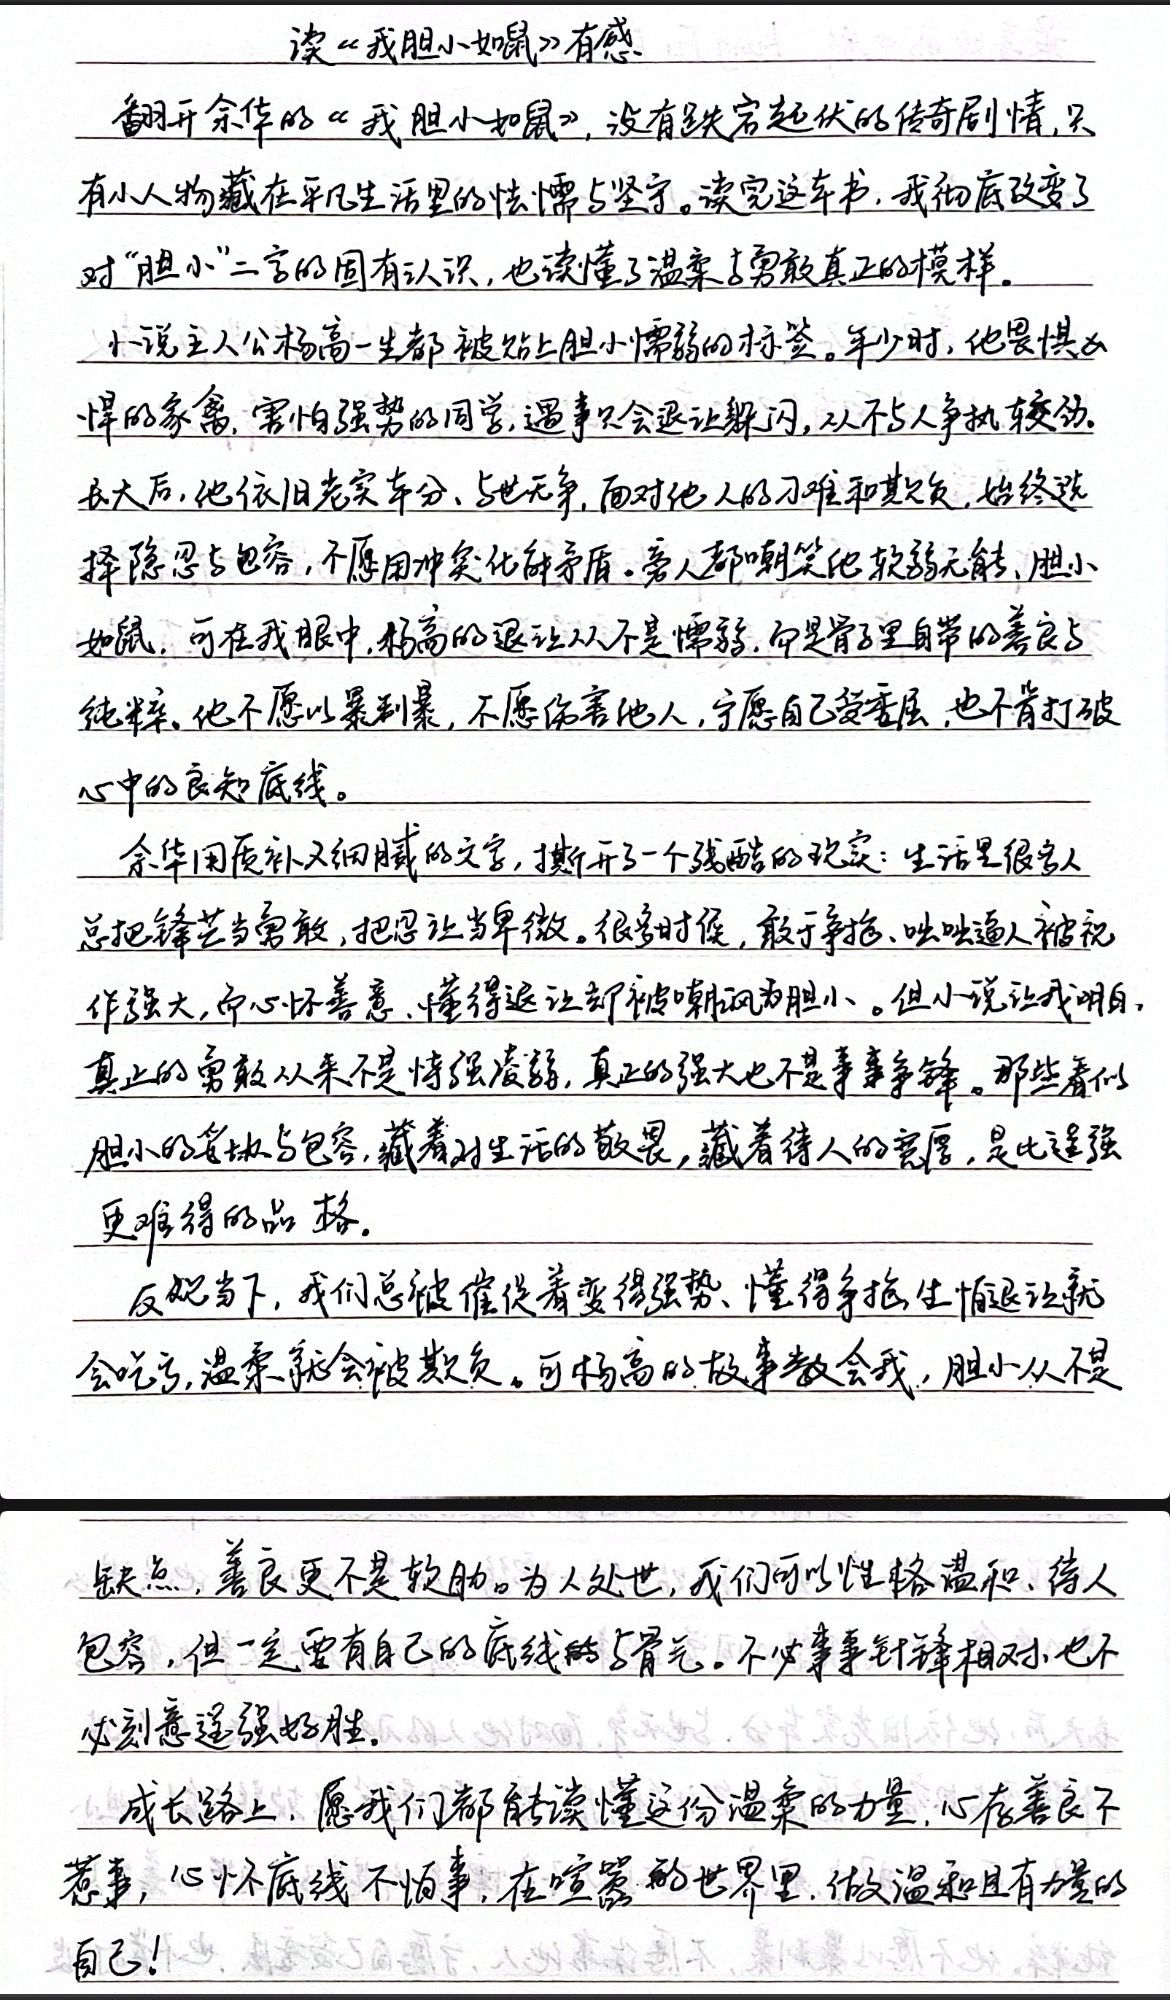 读《我胆小如鼠》有感
翻开余华的《我胆小如鼠》,没有跌宕起伏的传奇剧情,只
有小人物藏在平凡生活里的怯懦与坚守。读完这本书,我彻底改变了
对“胆小”二字的固有认识,也读懂了温柔与勇敢真正的模样。
小说主人公杨高一生都被贴上胆小懦弱的标签。年少时,他畏惧凶
悍的家禽,害怕强势的同学,遇事只会退让躲闪,从不与人争执较劲。
长大后,他依旧老实本分、与世无争,面对他人的刁难和欺负,始终选
择隐忍与包容,不愿用冲突化解矛盾。旁人都嘲笑他软弱无能、胆小
如鼠,可在我眼中,杨高的退让从不是懦弱,而是骨子里自带的善良与
纯粹。他不愿以暴制暴,不愿伤害他人,宁愿自己受委屈,也不肯打破
心中的良知底线。
余华用质朴又细腻的文字,撕开了一个残酷的现实:生活里很多人
总把锋芒当勇敢,把忍让当卑微。很多时候,敢于争抢、咄咄逼人被视
作强大,而心怀善意、懂得退让却被嘲讽为胆小。但小说让我明白,
真正的勇敢从来不是恃强凌弱,真正的强大也不是事事争锋。那些看似
胆小的与包容,藏着对生活的敬畏,藏着待人的宽厚,是比逞强
更难得的品格。
反观当下,我们总被催促着变得强势、懂得争抢,生怕退让就
会吃亏,温柔就会被欺负。可杨高的故事教会我,胆小从不是
缺点,善良更不是软肋。为人处世,我们可以性格温和、待人
包容,但一定要有自己的底线与骨气。不必事事针锋相对,也不
必刻意逞强好胜。
成长路上,愿我们都能读懂这份温柔的力量,心存善良不
惹事,心怀底线不怕事,在喧嚣的世界里,做温和且有力量的
自己!